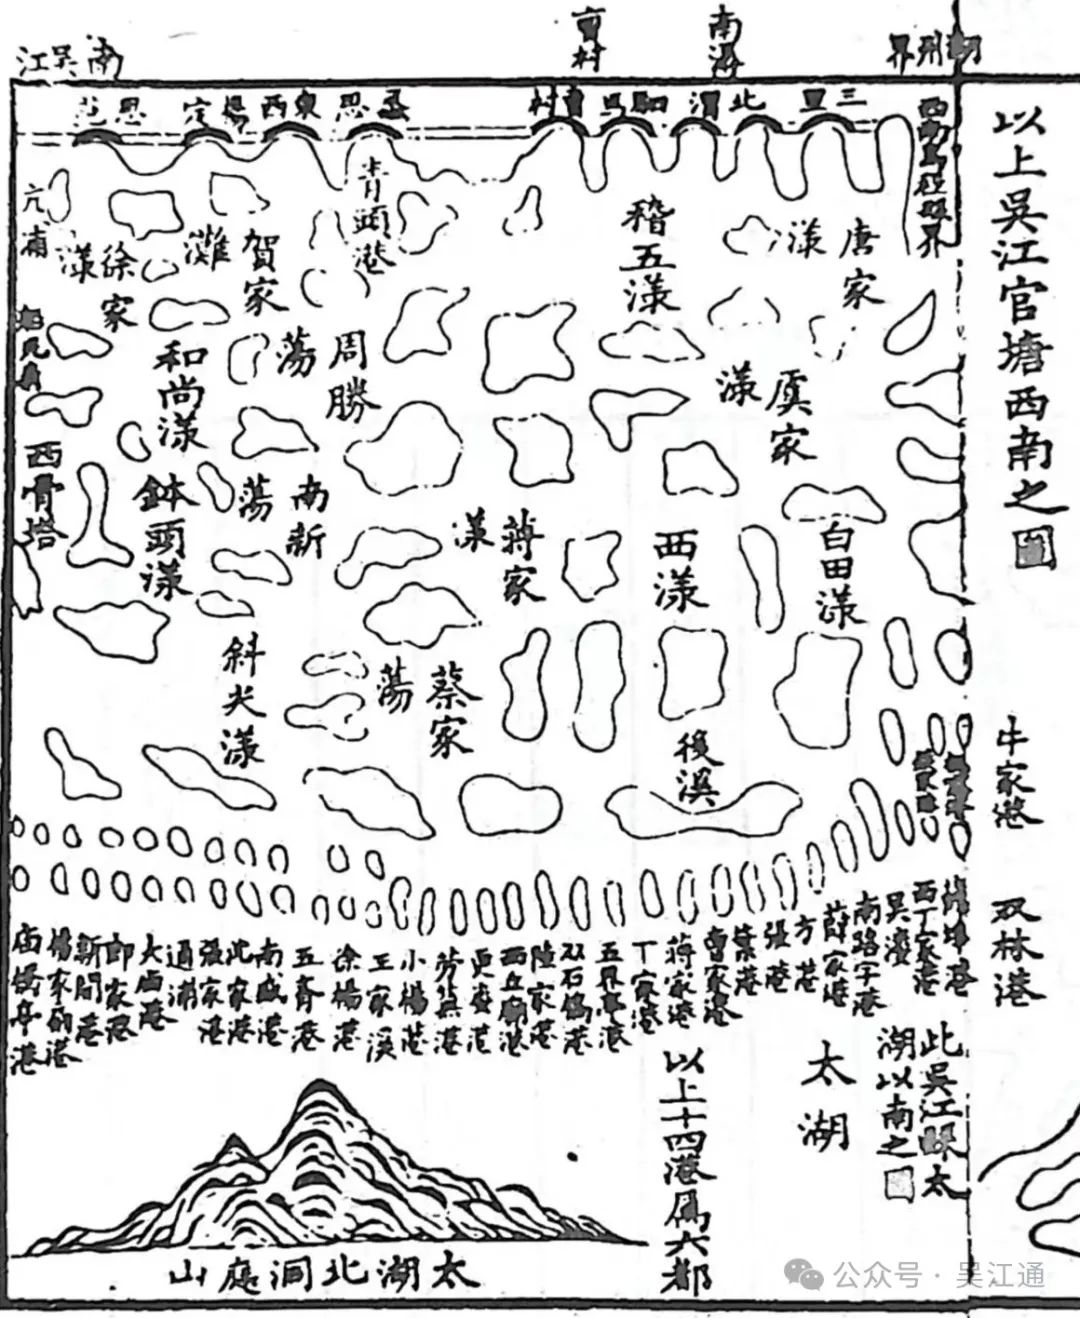 以上吳江官塘西南之圖
牛家港
双林港
湖州界
南潯
曹村
南吳江
三里
北渭
馬
曹村
思
東西
楊定
思范
唐家漾
稽五漾
青頭港
賀家灘
徐家漾
亢浦
虞家漾
周勝蕩
和尚漾
西骨塔
白田漾
西漾
蔣家漾
南新蕩
鉢頭漾
後溪
蔡家蕩
斜尖漾
西丁家港
吳漊
南路字港
薛家港
方港
張港
葉港
曹家港
蔣家港
丁家港
五界亭港
双石鴿港
陸家港
西丘廟港
更漊港
小楊港
王家溪
徐楊港
五齊港
南盛港
此家港
張家港
通浦
大廟港
郎家港
新開港
楊家的港
廟橋亭港
此吳江縣太湖以南之圖
太湖
以上十四港属六都
太湖北洞庭山
公众号·吴江通